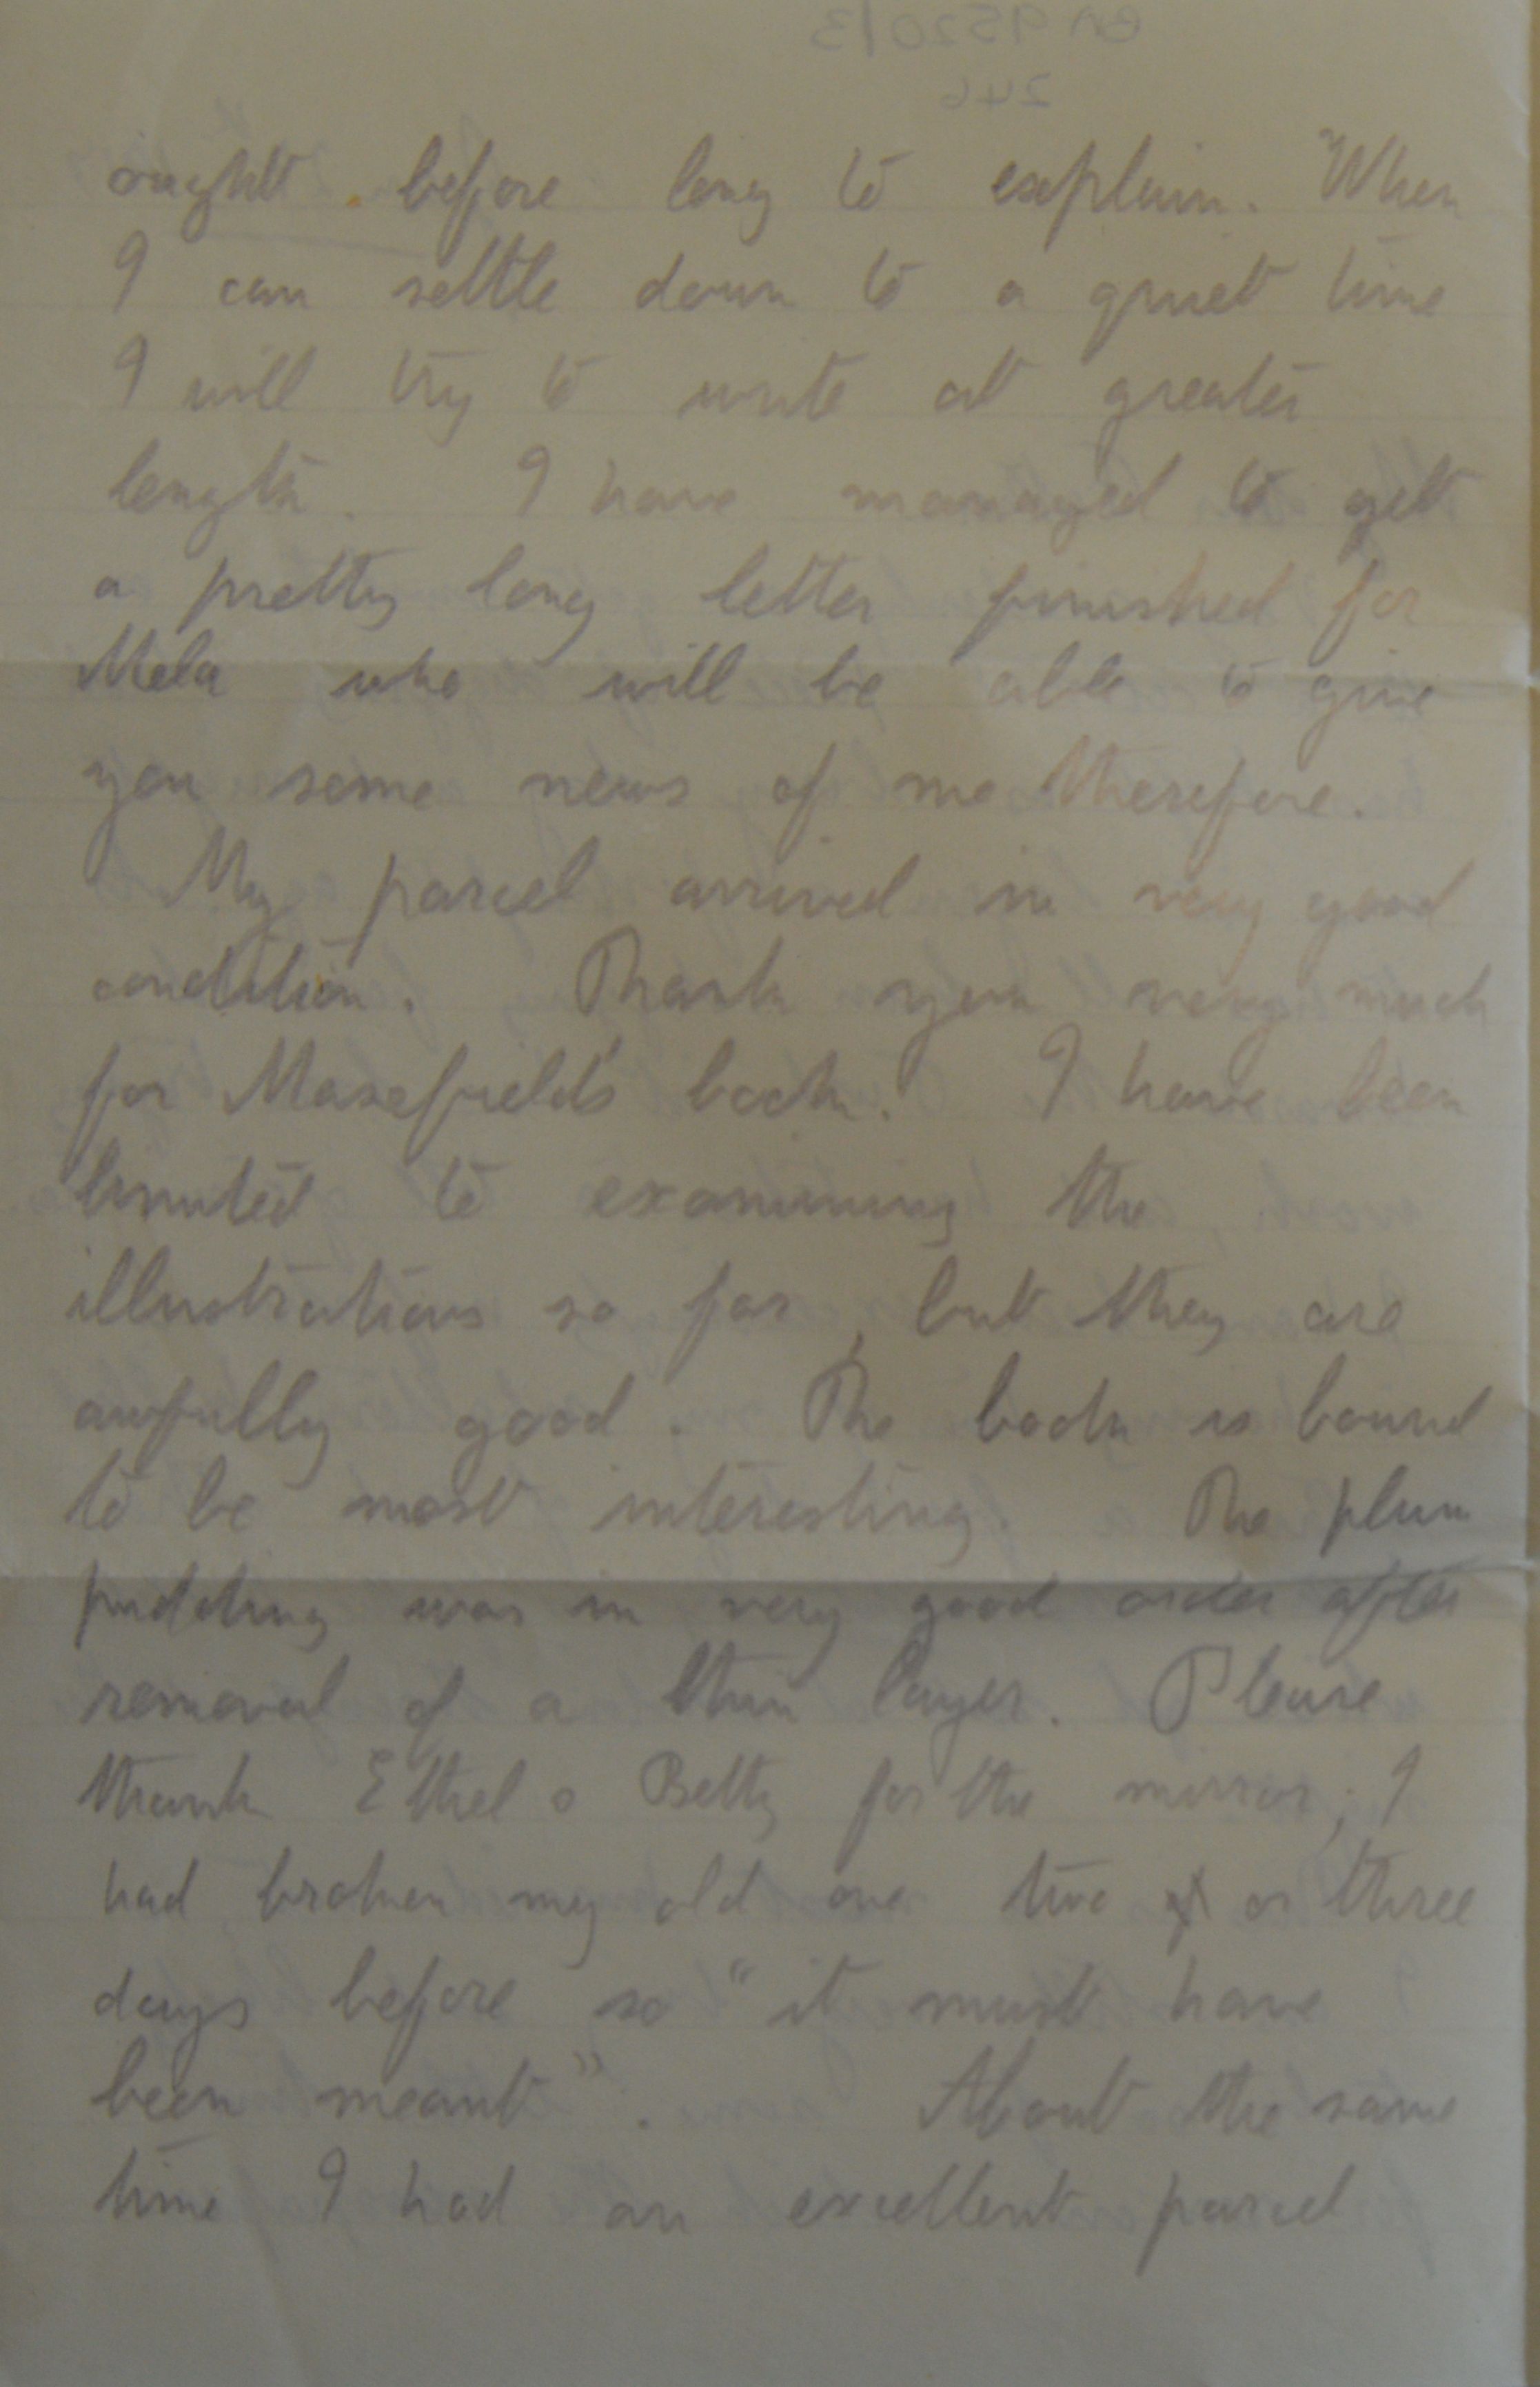 ought before long to explain. When
I can settle down to a quiet time
I will try to write at greater
length. I have managed to get
a pretty long letter finished for
Mela who will be able to give
you some news of me therefore.
My parcel arrived in very good
condition. Thank you very much
for Masefield's book. I have been
limited to examining the
illustrations so far, but they are
awfully good. The book is bound
to be most interesting. The plum
pudding was in very good order after
removal of a thin layer. Please
thank Ethel & Betty for the mirror; I
had broken my old one two or three
days before so "it must have
been meant". About the same
time I had an excellent parcel